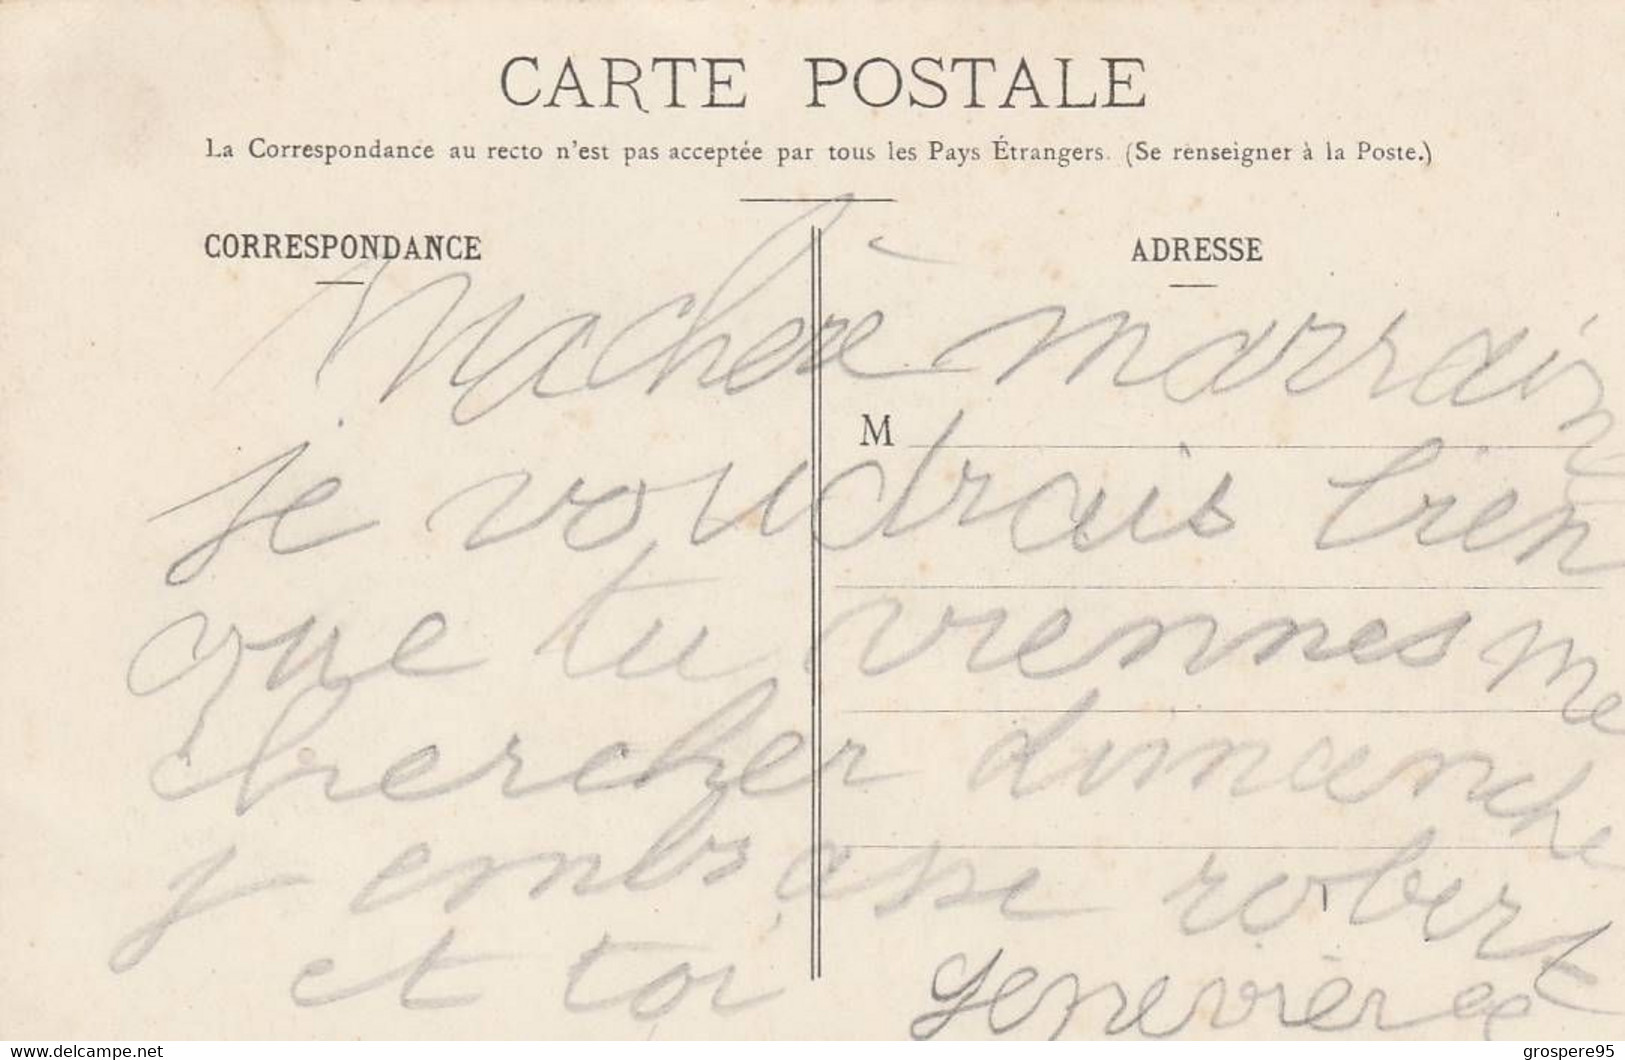 CARTE POSTALE
La Correspondance au recto n'est pas acceptée par tous les Pays Étrangers. (Se renseigner à la Poste.)
CORRESPONDANCE
ADRESSE
Ma chère marrain
M
je voudrais bien
que tu viennes me
chercher dimanche
j embrasse robert
et toi Genevieve
http://www.delcampe.net
grospere95